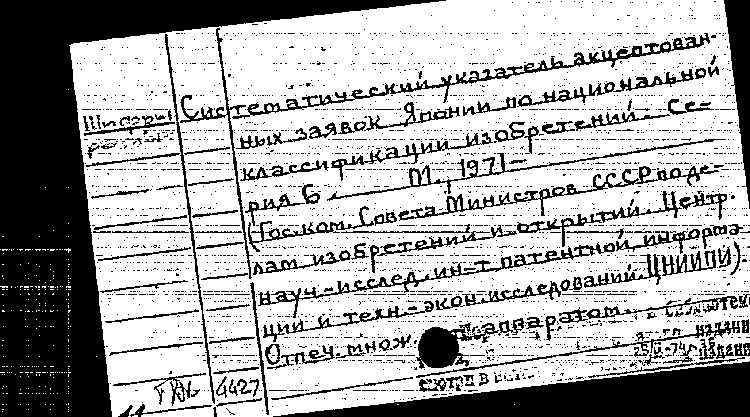 Систематический указатель акцептован-
Шифры
ных заявок Японии по национальной
классификации изобретений. Се-
рия 6. М., 1971-
(Гос. ком. Совета Министров СССР по де-
лам изобретений и открытий. Центр.
науч.-исслед. ин-т патентной информа
ции и техн.-экон. исследований. ЦНИИПИ).
Отпеч. множ. аппаратом.
4427